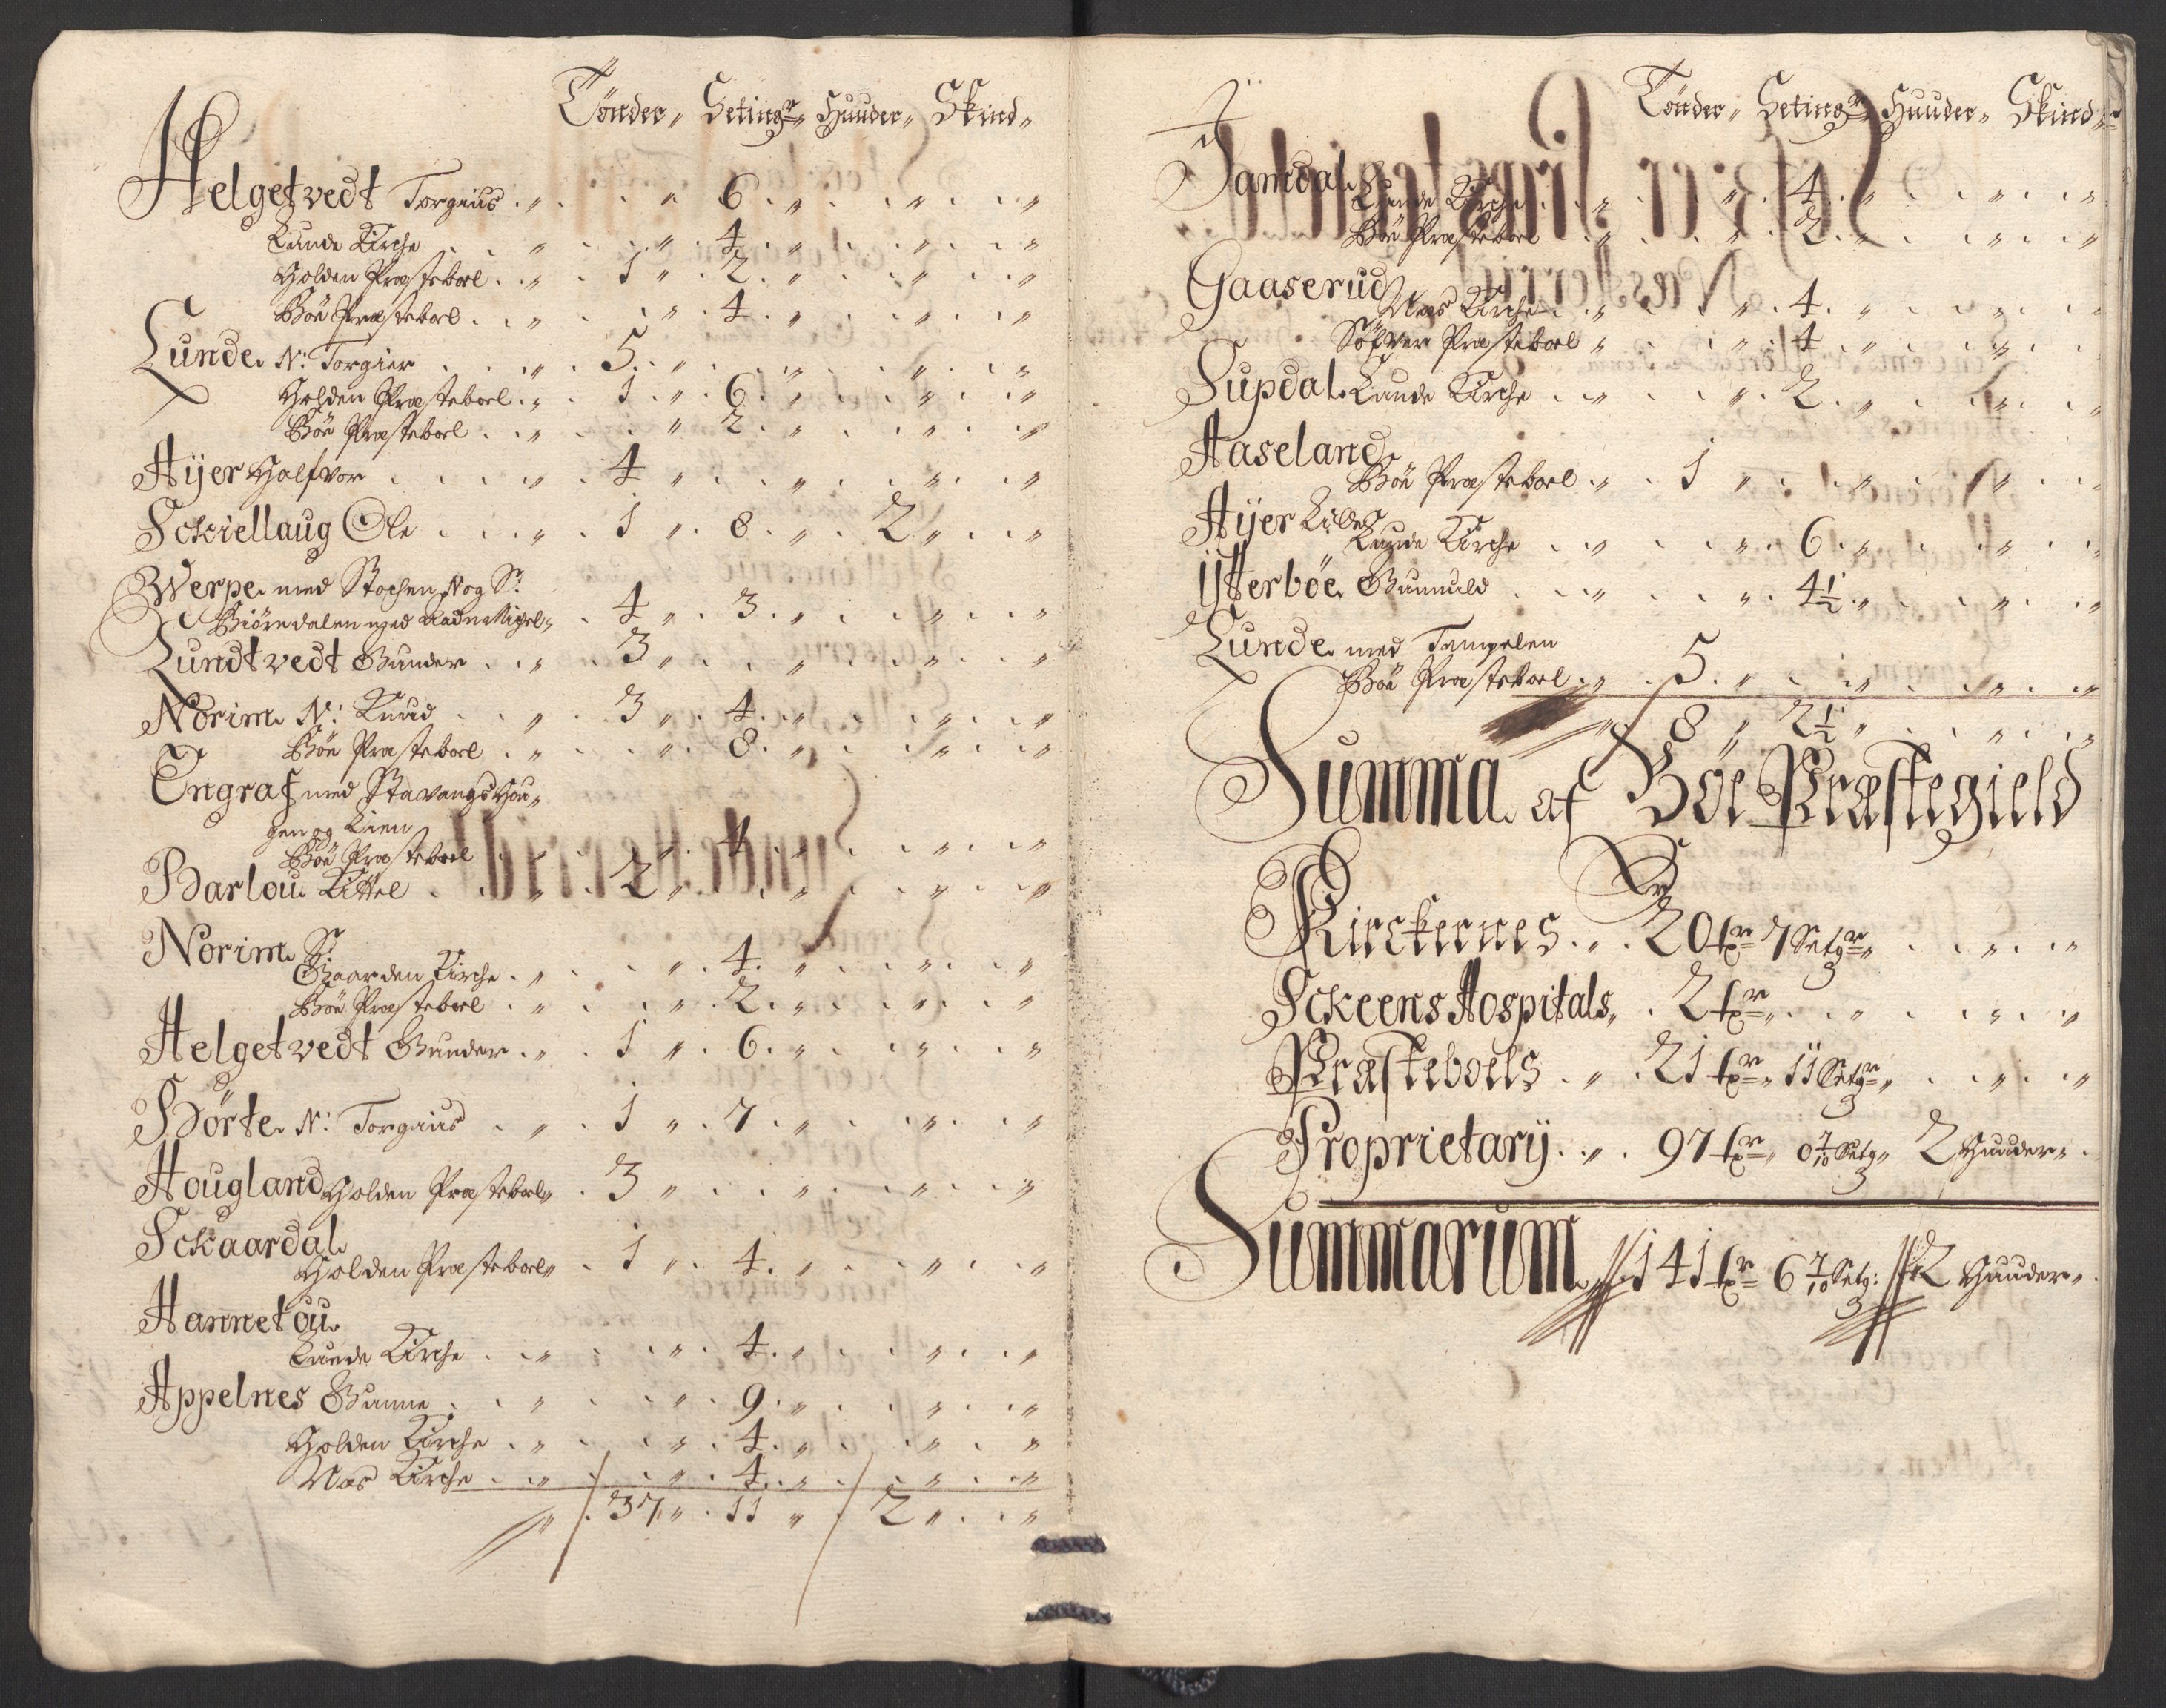 Tönder„ Setingr„ Huuder„ Skind„
Helgetvedt Torgius . „ . . „ 6 . „ . . „ . . „
Lunde Kirche . . „ . . „ . 4 . „ . . „ . . „
Holden Præsteboel . . „ . 1 „ . 2 . „ . . „ . . „
Böe Præsteboel . . „ . . „ . 4 . „ . . „ . . „
Lunde N: Torgier . . „ . 5 . „ . . „ . . „ . . „
Holden Præsteboel . „ . 1 „ . 6 . „ . . „ . . „
Böe Præsteboel . . „ . . „ 2 . „ . . „ . . „
Aÿer Halfvor . . . „ . 4 „ . . „ . . „ . . „
Sckiellaug Ole . . . „ . 1 „ . 8 . „ . 2 „ . . „
Werpe med Stochen N og S:
Biörndalen med „ 4 „ . 3 . „ . . „ . . „
Lundtvedt Gunder . . „ . 3 „ . . „ . . „ . . „
Norim N: Knud . . „ . 3 „ . 4 . „ . . „ . . „
Böe Præsteboel . „ . . „ . 8 . „ . . „ . . „
Engraf med Stavangs Hou„
gen og Lien
Böe Præsteboel . . „ . 4 . „ . . „ . . „
Barlou Kittel . . „ . 2 „ . . „ . . „ . . „
Norim S:
Gaarden Kirche . „ . . „ . 4 . „ . . „ . . „
Böe Præsteboel . „ . . „ . 2 . „ . . „ . . „
Helgetvedt Gunder . „ . 1 „ . 6 . „ . . „ . . „
Börte N: Torgius . „ . 1 „ . 7 . „ . . „ . . „
Hougland Holden Præsteboel„ . 3 „ . . „ . . „ . . „
Sckaardal
Holden Præsteboel„ . 1 „ . 4 . „ . . „ . . „
Hannetou
Lunde Kirche . . „ . . „ . 4 . „ . . „ . . „
Appelnes Gunne . . „ . . „ . 9 . „ . . „ . . „
Holden Kirche . „ . . „ . 4 . „ . . „ . . „
Næs Kirche . . „ . . „ . 4 . „ . . „ . . „
„ . 37 „ . 11 „ . 2 „ . . „
Tönder„ Setingr„ Huuder„ Skind„
Jamdal
Lunde Kirche . . „ . . „ . 4 . „ . . „ . . „
Böe Præsteboel . . „ . . „ . 2 . „ . . „ . . „
Gaaserud
Næs Kirche . . „ . . „ . 4 . „ . . „ . .
Præsteboel „ . . „ . 4 . „ . . „ . .
Supdal Lunde Kirche . . „ . . „ . 2 . „ . . „ . . „
Aaseland
Böe Præsteboel . „ . 1 „ . . „ . . „ . .
Aÿer Lille
Lunde Kirche . . „ . . „ . 6 . „ . . „ . . „
Ytterböe Gunnuld . . „ . . „ . 4 1/2 „ . . „ . . „
Lunde med Tempelen
Böe Præsteboel . „ . 5 . „ . . „ . . „ . . „
„ 8 „ 2 1/2 „ . . „ . . „
Summa af Böe Præstegield
Kirckernes . „ . 20 tr 7 Setgr„ . . „ . . „
Sckeens Hospitals„ . 2 tr„ . . „ . . „ . . „
Præsteboels . „ . 21 tr„ 11 Setgr„ . . „ . . „
Proprietarÿ . „ . 97 tr„ 0 7/10 Setg„ 2 Huuder„ .
Summarum 141 tr 6 7/10 Setg: 2 Huuder„ .